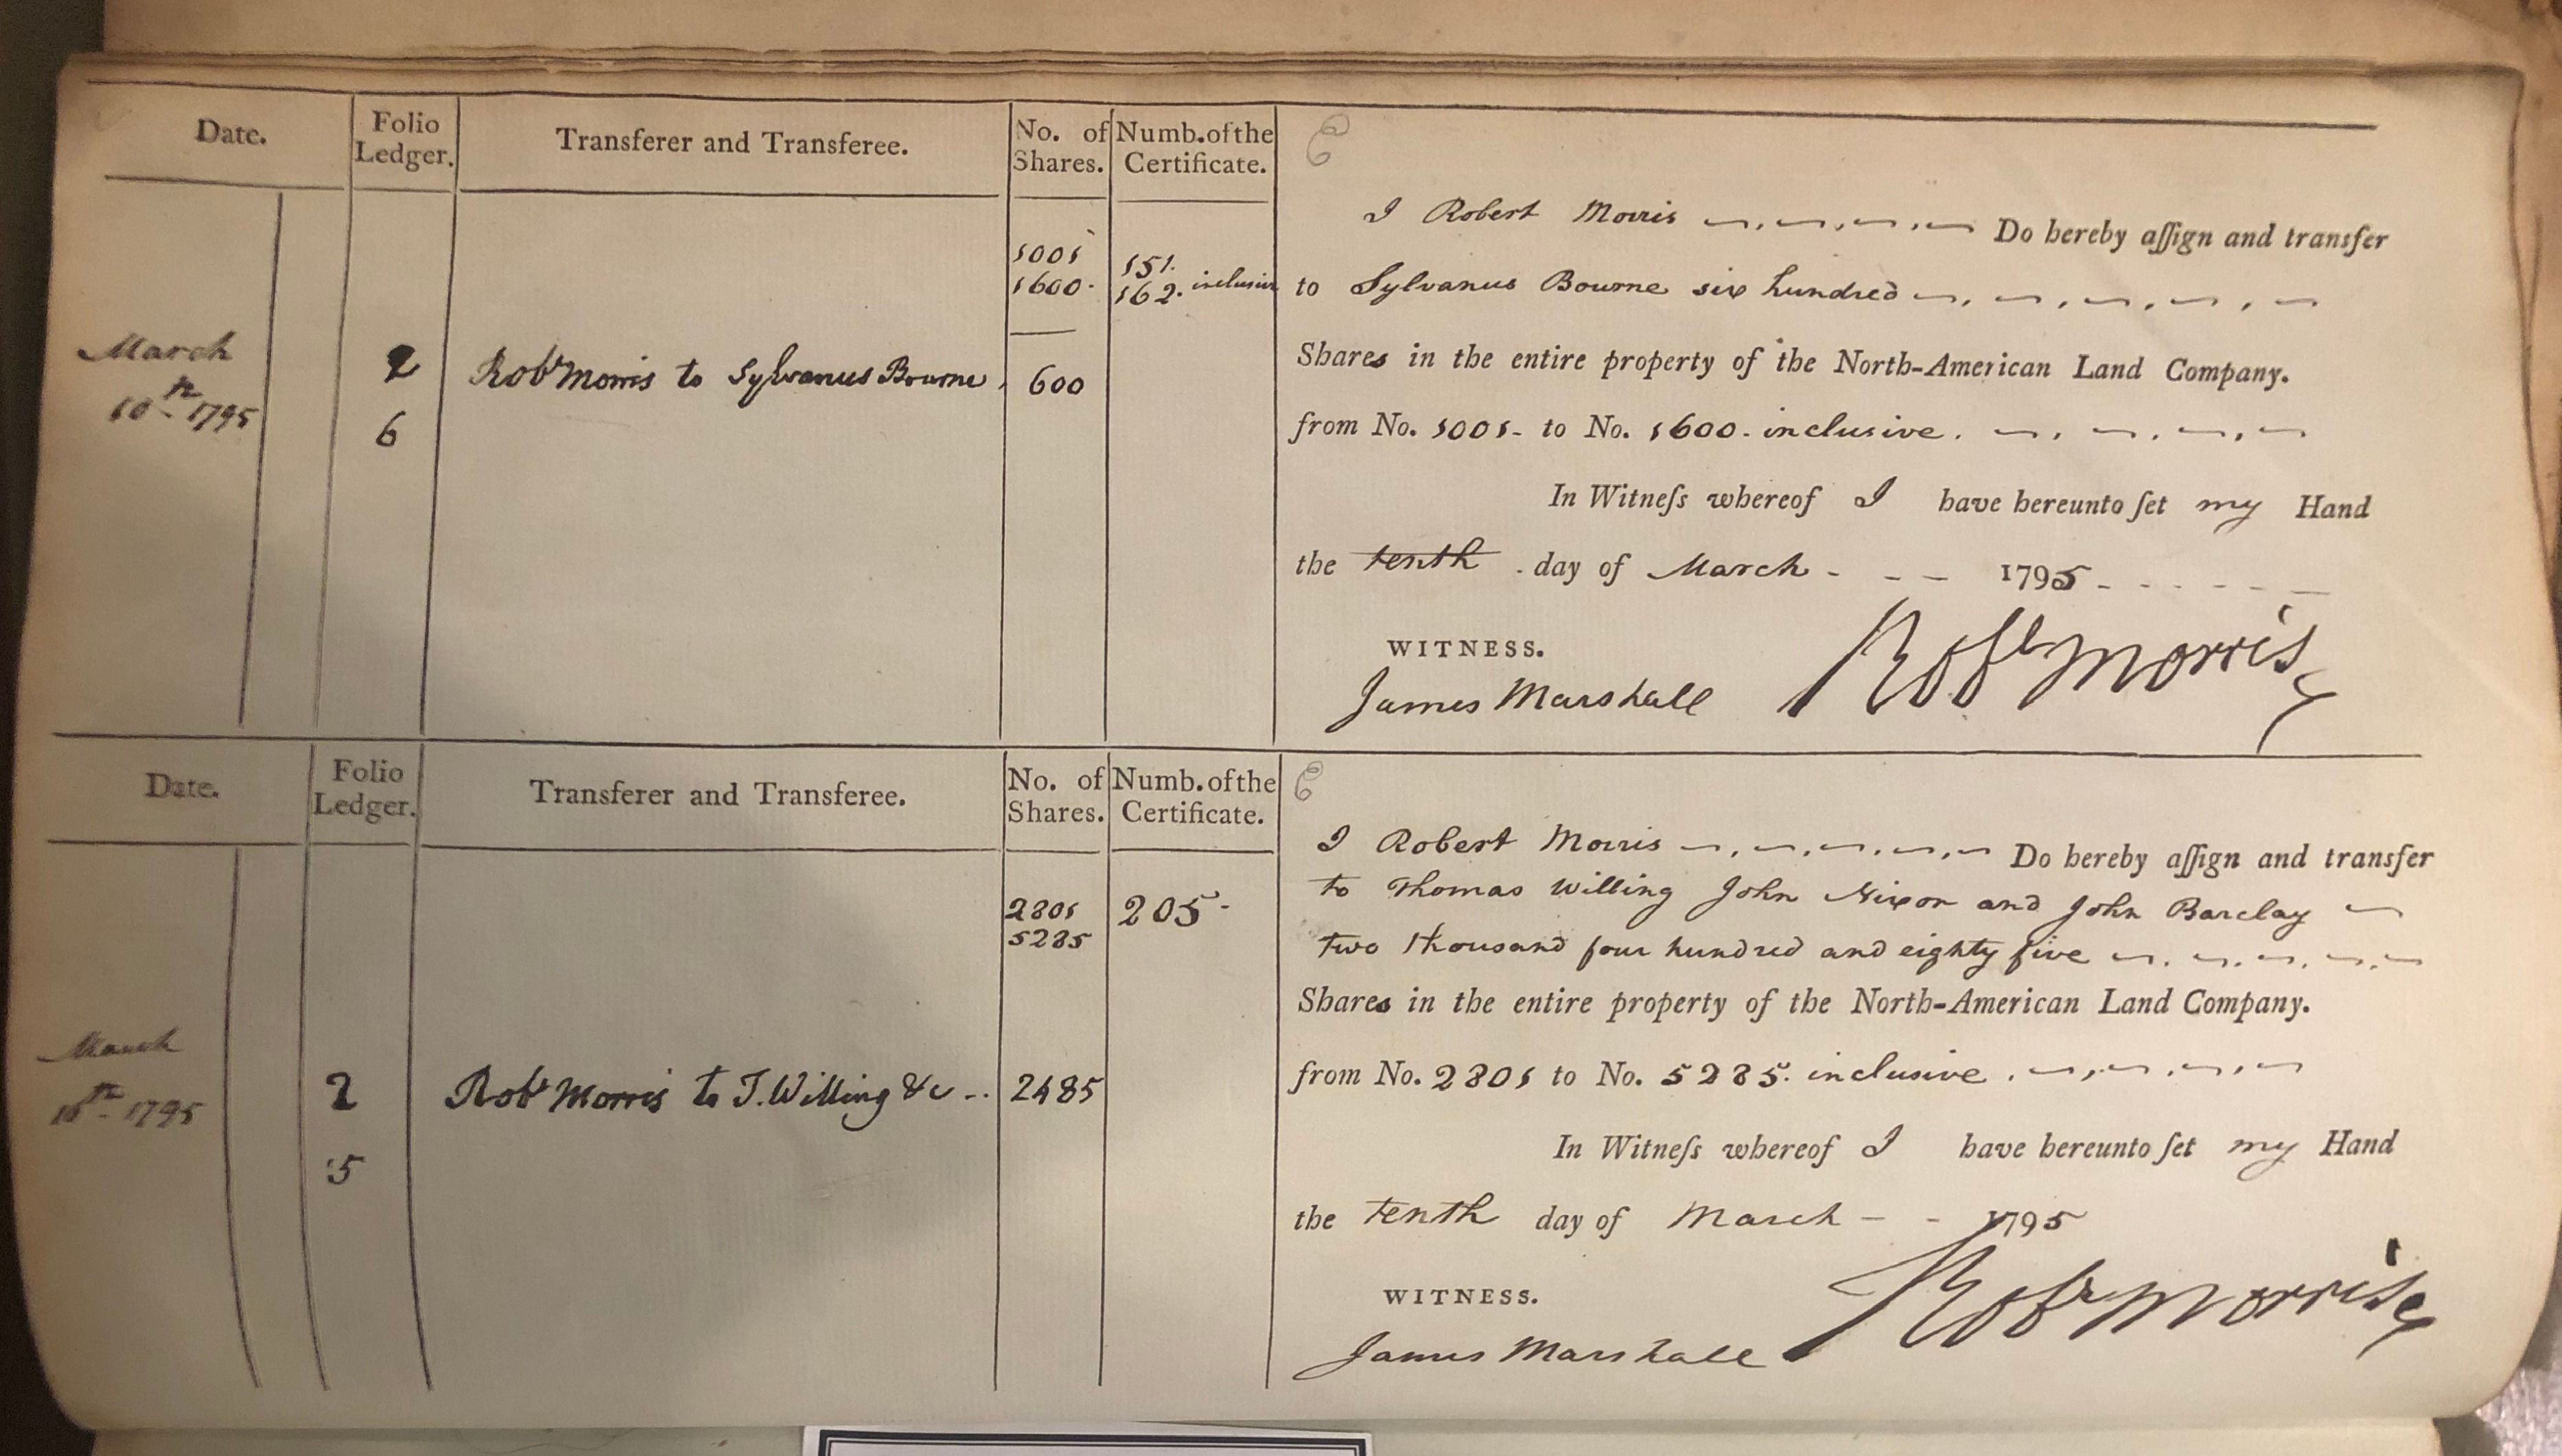 Date.
Folio Ledger.
Transferer and Transferee.
No. of Shares.
Numb. of the Certificate.
March
10th 1795
2
6
Robt Morris to Sylvanus Bourne
1001
1600.
600
151.
162. inclusive
I Robert Morris Do hereby aſſign and transfer
to Sylvanus Bourne six hundred
Shares in the entire property of the North-American Land Company.
from No. 1001 - to No. 1600 - inclusive.
In Witneſs whereof I have hereunto ſet my Hand
the tenth . day of March - - - 1795
WITNESS.
James Marshall
Robt Morris
Date.
Folio Ledger.
Transferer and Transferee.
No. of Shares.
Numb. of the Certificate.
March
10th 1795
2
5
Robt Morris to T. Willing &c ..
2801
5285
2485
205
I Robert Morris Do hereby aſſign and transfer
to Thomas Willing John Nixon and John Barclay
two thousand four hundred and eighty five
Shares in the entire property of the North-American Land Company.
from No. 2801 to No. 5285. inclusive.
In Witneſs whereof I have hereunto ſet my Hand
the tenth day of March - - 1795
WITNESS.
James Marshall
Robt Morris